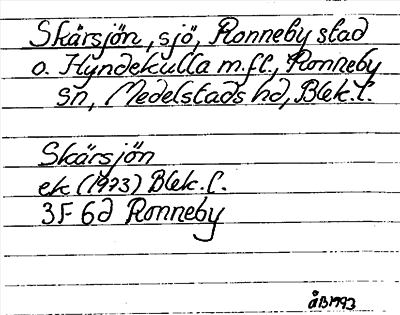 Skärsjön, sjö, Ronneby stad
o. Hyndekulla m.fl., Ronneby
sn, Medelstads hd, Blek. l.
Skärsjön
ek (1973) Blek. l.
3F 6d Ronneby
åB1993